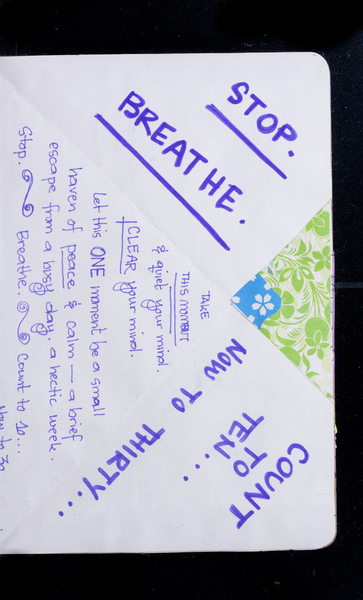 STOP.
BREATHE.
COUNT
TO
TEN...
NOW TO THIRTY...
TAKE
THIS MOMENT
& quiet your mind.
CLEAR your mind.
Let this ONE moment be a small
haven of peace & calm — a brief
escape from a busy day. a hectic week.
Stop. Breathe. Count to 10...
Now to 30